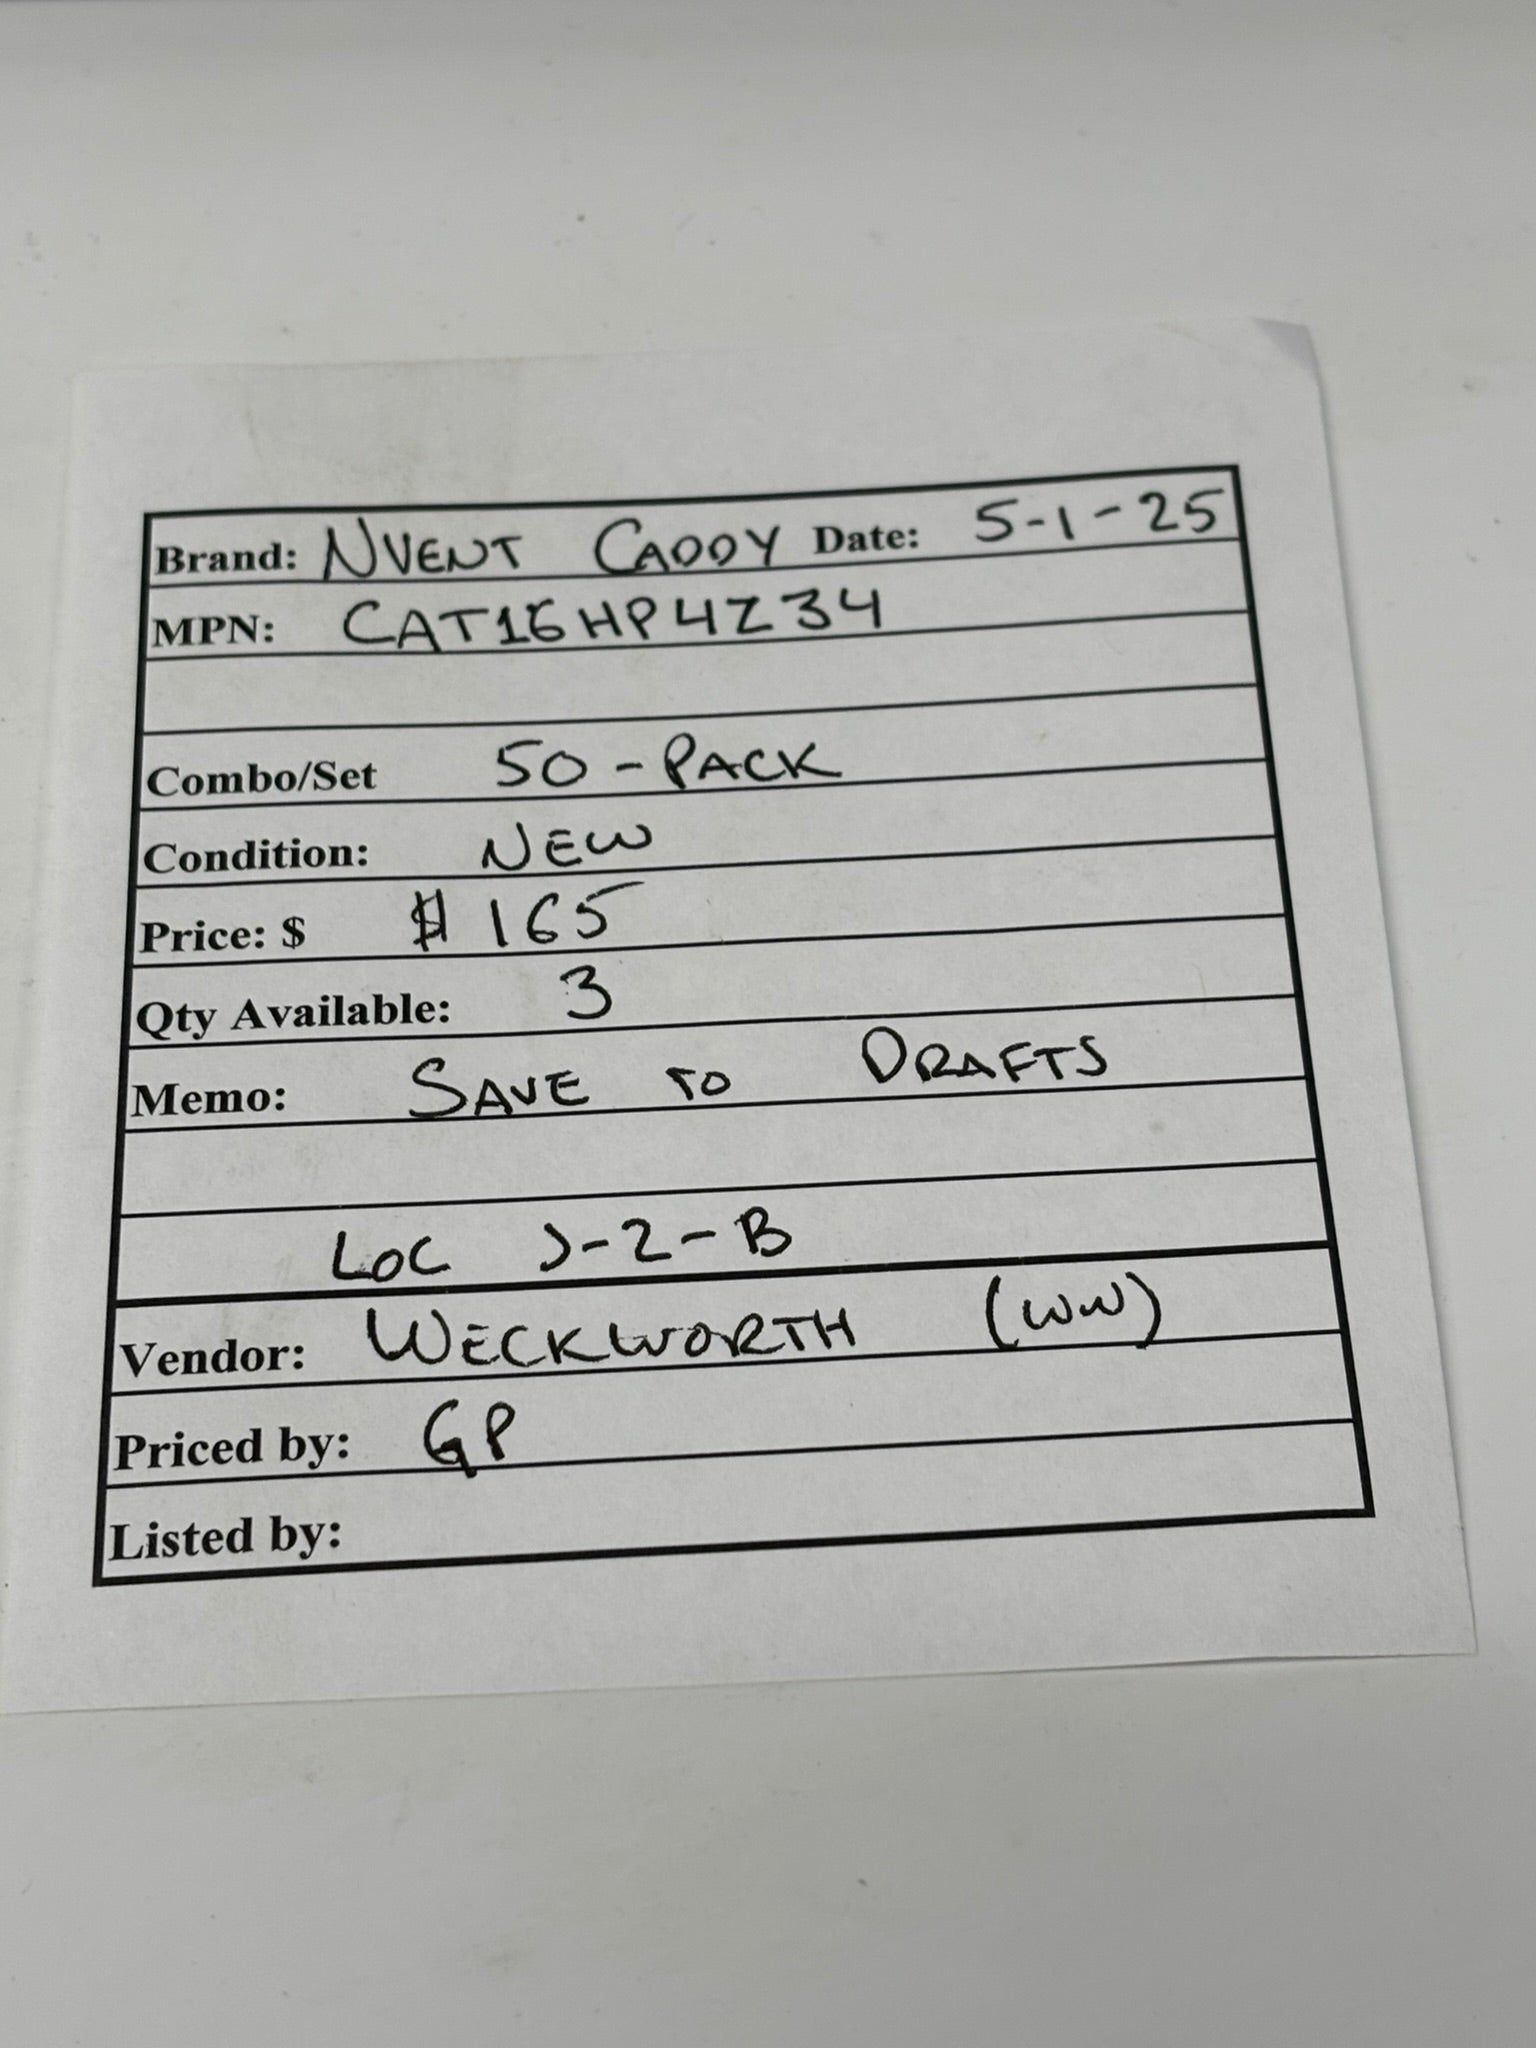 Brand: NVENT CADDY Date: 5-1-25
MPN: CAT16HP4Z34
Combo/Set 50-PACK
Condition: NEW
Price: $ $165
Qty Available: 3
Memo: SAVE TO DRAFTS
LOC J-2-B
Vendor: WECKWORTH (WW)
Priced by: GP
Listed by: